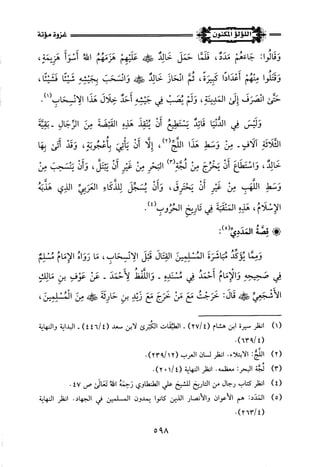 اللؤلؤ المكنون
غزوة مؤتة
وَقَالُوا: جَاءَهُمْ مَدَدٌ، فَلَمَّا حَمَلَ خَالِدٌ ﷺ عَلَيْهِمْ هَزَمَهُمُ اللهُ أَسْوَأَ هَزِيمَةٍ،
وَقَتَلُوا مِنْهُمْ أَعْدَادًا كَبِيرَةً، ثُمَّ انْحَازَ خَالِدٌ ﷺ وَانْسَحَبَ بِجَيْشِهِ شَيْئًا فَشَيْئًا،
حَتَّى انْصَرَفَ إِلَى المَدِينَةِ، وَلَمْ يُصَبْ فِي جَيْشِهِ أَحَدٌ خِلَالَ هَذَا الِانْسِحَابِ(١).
وَلَيْسَ فِي الدُّنْيَا قَائِدٌ يَسْتَطِيعُ أَنْ يُنْقِذَ هَذِهِ القَبْضَةَ مِنَ الرِّجَالِ - بَقِيَّةَ
الثَّلَاثَةِ آلَافٍ - مِنْ وَسَطِ هَذَا اللُّجِّ(٢)، إِلَّا أَنْ يَأْتِيَ بِأُعْجُوبَةٍ، وَقَدْ أَتَى بِهَا
خَالِدٌ، وَاسْتَطَاعَ أَنْ يَخْرُجَ مِنْ لُجَّةِ(٣) البَحْرِ مِنْ غَيْرِ أَنْ يَبْتَلَّ، وَأَنْ يَنْسَحِبَ مِنْ
وَسَطِ اللَّهَبِ مِنْ غَيْرِ أَنْ يَحْتَرِقَ، وَأَنْ يُسَجِّلَ لِلذَّكَاءِ العَرَبِيِّ الذِي هَذَّبَهُ
الإِسْلَامُ، هَذِهِ المَنْقَبَةَ فِي تَارِيخِ الحُرُوبِ(٤).
قِصَّةُ المَدَدِيِّ(٥):
وَمِمَّا يُؤَكِّدُ مُبَاشَرَةَ المُسْلِمِينَ القِتَالَ قَبْلَ الِانْسِحَابِ، مَا رَوَاهُ الإِمَامُ مُسْلِمٌ
فِي صَحِيحِهِ وَالإِمَامُ أَحْمَدُ فِي مُسْنَدِهِ - وَاللَّفْظُ لِأَحْمَدَ - عَنْ عَوْفِ بنِ مَالِكٍ
الأَشْجَعِيِّ ﷺ قَالَ: خَرَجْتُ مَعَ مَنْ خَرَجَ مَعَ زَيْدِ بنِ حَارِثَةَ ﷺ مِنَ المُسْلِمِينَ،
(١) انظر سيرة ابن هشام (٢٧/٤) - الطَّبَقَات الكُبْرَى لابن سعد (٤٤٦/٤) - البداية والنهاية
(٦٣٩/٤).
(٢) اللُّجُّ: الابتلاء. انظر لسان العرب (٢٣٩/١٢).
(٣) لُجَّة البحر: معظمه. انظر النهاية (٢٠١/٤).
(٤) انظر كتاب رجال من التاريخ للشيخ علي الطنطاوي رَحِمَهُ اللهُ تَعَالَى ص ٤٧.
(٥) المَدَد: هم الأعوان والأنصار الذين كانوا يمدون المسلمين في الجهاد. انظر النهاية
(٢٦٣/٤).
٥٩٨